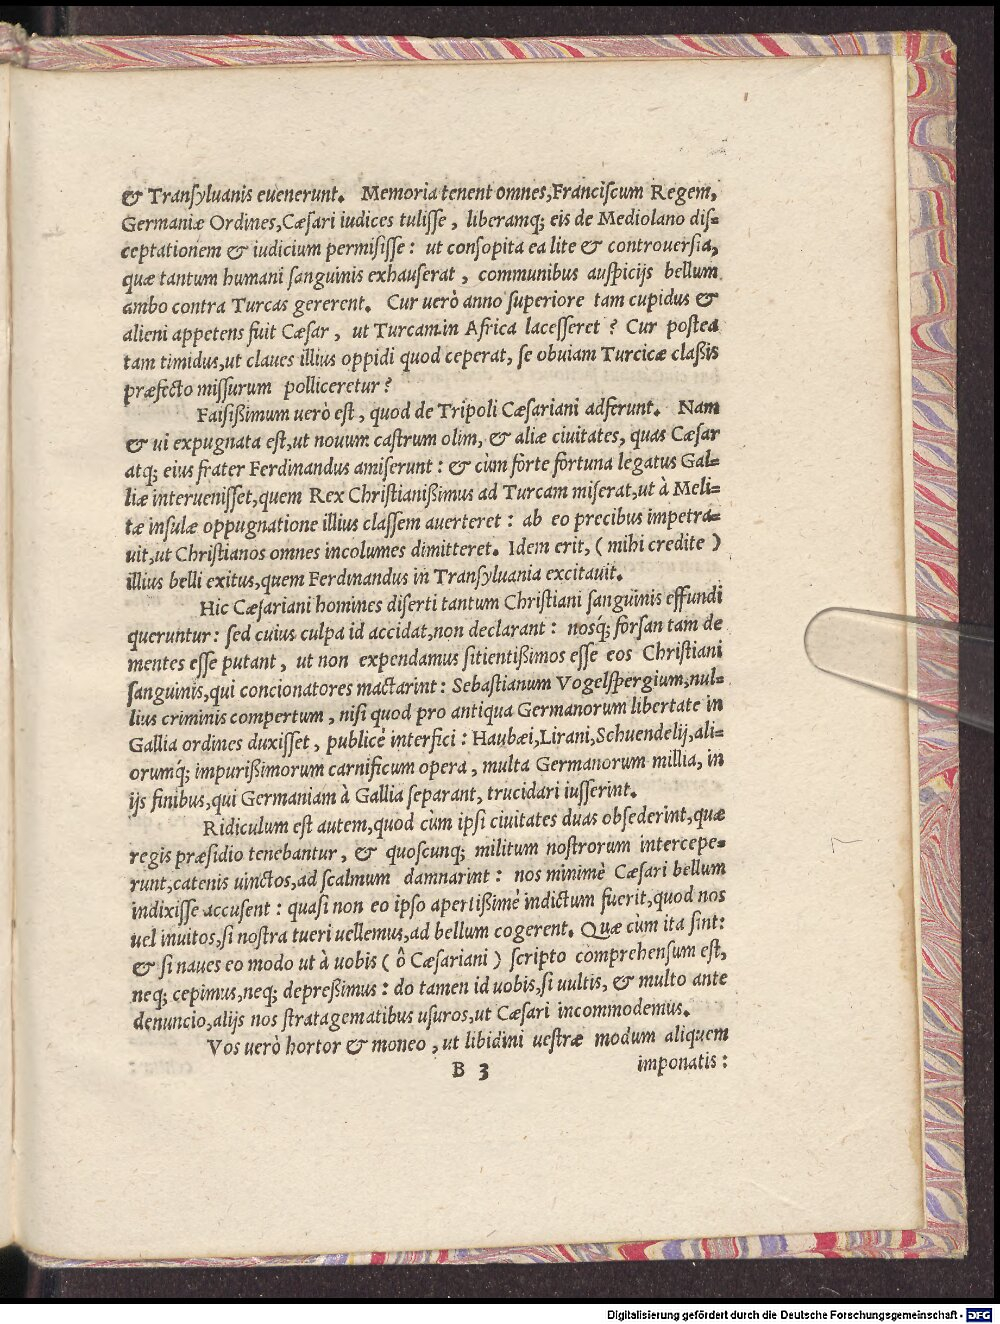 & Tranſyluanis euenerunt. Memoria tenent omnes, Franciſcum Regem,
Germaniæ Ordines, Cæſari iudices tuliſſe, liberamq; eis de Mediolano diſ=
ceptationem & iudicium permiſiſſe: ut conſopita ea lite & controuerſia,
quæ tantum humani ſanguinis exhauſerat, communibus auſpicijs bellum
ambo contra Turcas gererent. Cur uerò anno ſuperiore tam cupidus &
alieni appetens fuit Cæſar, ut Turcam in Africa laceſſeret? Cur poſtea
tam timidus, ut claues illius oppidi quod ceperat, ſe obuiam Turcicæ claßis
præfecto miſſurum polliceretur?
Falſißimum uerò eſt, quod de Tripoli Cæſariani adferunt. Nam
& ui expugnata eſt, ut nouum caſtrum olim, & aliæ ciuitates, quas Cæſar
atq; eius frater Ferdinandus amiſerunt: & cùm forte fortuna legatus Gal=
liæ interueniſſet, quem Rex Chriſtianißimus ad Turcam miſerat, ut à Meli=
tæ inſulæ oppugnatione illius claſſem auerteret: ab eo precibus impetra=
uit, ut Chriſtianos omnes incolumes dimitteret. Idem erit, (mihi credite)
illius belli exitus, quem Ferdinandus in Tranſyluania excitauit.
Hic Cæſariani homines diſerti tantum Chriſtiani ſanguinis effundi
queruntur: ſed cuius culpa id accidat, non declarant: nosq́; forſan tam de
mentes eſſe putant, ut non expendamus ſitientißimos eſſe eos Chriſtiani
ſanguinis, qui concionatores mactarint: Sebaſtianum Vogelſpergium, nul=
lius criminis compertum, niſi quod pro antiqua Germanorum libertate in
Gallia ordines duxiſſet, publicè interfici: Haubæi, Lirani, Schuendelij, ali=
orumq́; impurißimorum carnificum opera, multa Germanorum millia, in
ijs finibus, qui Germaniam à Gallia ſeparant, trucidari iuſſerint.
Ridiculum eſt autem, quod cùm ipſi ciuitates duas obſederint, quæ
regis præſidio tenebantur, & quoſcunq; militum noſtrorum intercepe=
runt, catenis uinctos, ad ſcalmum damnarint: nos minimè Cæſari bellum
indixiſſe accuſent: quaſi non eo ipſo apertißimè indictum fuerit, quod nos
uel inuitos, ſi noſtra tueri uellemus, ad bellum cogerent. Quæ cùm ita ſint:
& ſi naues eo modo ut à uobis (ô Cæſariani) ſcripto comprehenſum eſt,
neq; cepimus, neq; depreßimus: do tamen id uobis, ſi uultis, & multo ante
denuncio, alijs nos ſtratagematibus uſuros, ut Cæſari incommodemus.
Vos uerò hortor & moneo, ut libidini ueſtræ modum aliquem
B 3 imponatis:
Digitalisierung gefördert durch die Deutsche Forschungsgemeinschaft - DFG